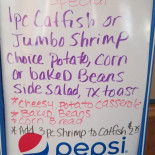 Special
1pc Catfish or
Jumbo Shrimp
Choice Potato, Corn
or baked Beans
side salad, TX toast
* Cheesy Potato Casserole
* Baked Beans
* Corn Bread
* Add 3pc Shrimp to Catfish
pepsi